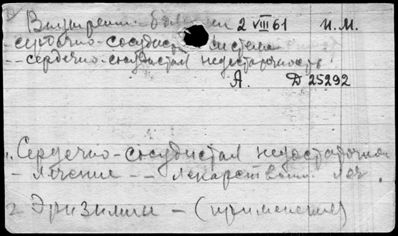 Внутренн. болезни 2 VIII 61 И.М.
- сердечно-сосудист. система
-- сердечно-сосудистая недостаточность
А. Д 25292
1. Сердечно-сосудистая недостаточн
- лечение -- лекарственн. леч.
2 Эризимин - (применение)